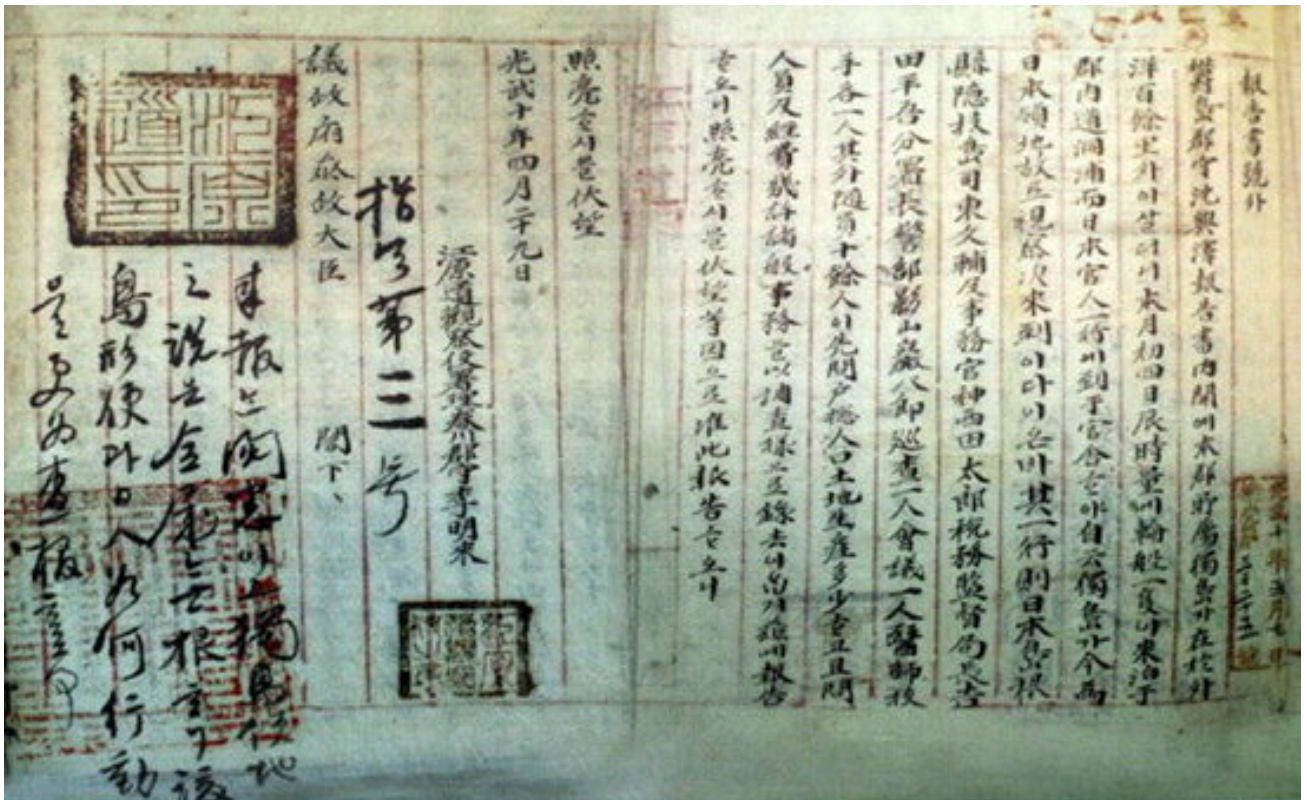 報告書號外
欝島郡守沈興澤報告書內開에本郡所屬獨島가在於外
洋百餘里外이살더니本月初四日辰時量에輪船一隻이來泊于
郡內道洞浦而日本官人一行이到于官舍ᄒᆞ야自云獨島가今爲
日本領地故로視察次來到이다이온바其一行則日本島根
縣隱岐島司東文輔及事務官神西田太郞稅務監督局長吉
田平吾分署長警部影山巖八郞巡查一人會議一人醫師技
手各一人其外隨員十餘人이先問戶摠人口土地生產多少ᄒᆞ고且問
人員及經費幾許諸般事務을以調查樣으로錄去이옵기玆에報告
ᄒᆞ오니照亮ᄒᆞ시믈伏望等因으로准此報告ᄒᆞ오니
照亮ᄒᆞ시믈伏望
光武十年四月二十九日
江原道觀察使署理春川郡守李明來
議政府參政大臣 閣下
指令第三号
來報는閱悉이고獨島領地
之說은全屬無根하나該
島形便과日人如何行動
을更爲查報할事